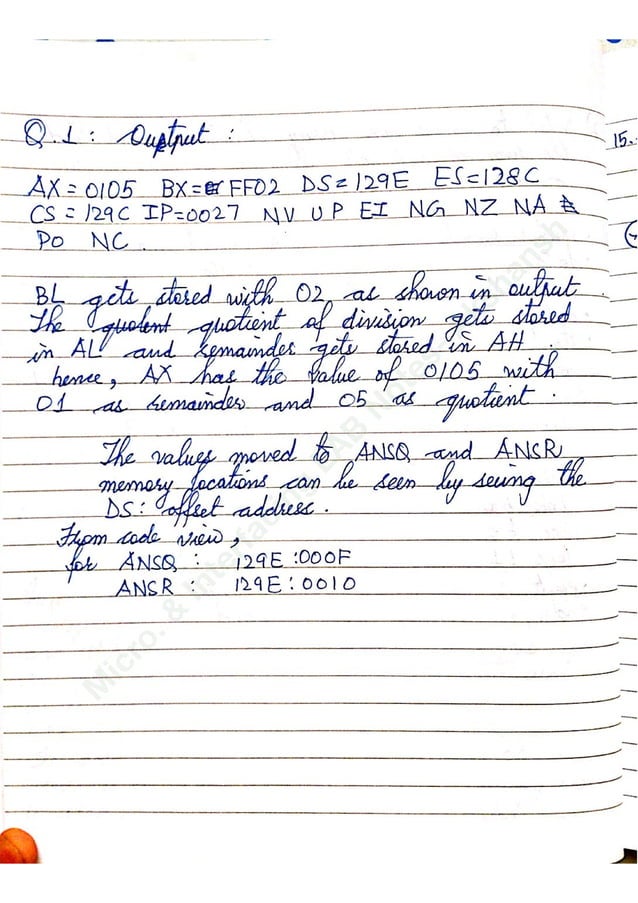 Q.1: Output :
15.
AX = 0105 BX = FF02 DS = 129E ES = 128C
CS = 129C IP=0027 NV UP EI NG NZ NA
PO NC.
BL gets stored with 02 as shown in output
The quotent quotient of division gets stored
in AL and remainder gets stored in AH.
hence, AX has the value of 0105 with
01 as remainder and 05 as quotient.
The values moved to ANSQ and ANSR
memory locations can be seen by seeing the
DS: offset address.
From code view,
for ANSQ : 129E :000F
ANSR : 129E : 0010
Micro. & Interfacing LAB Notes